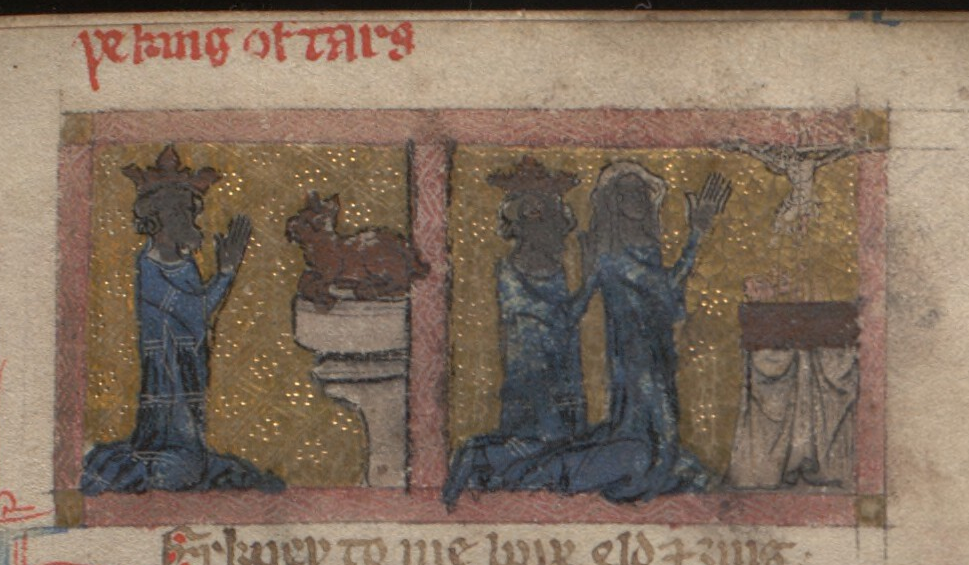 þe king of tars
Herkneþ to me boþe eld & ȝing